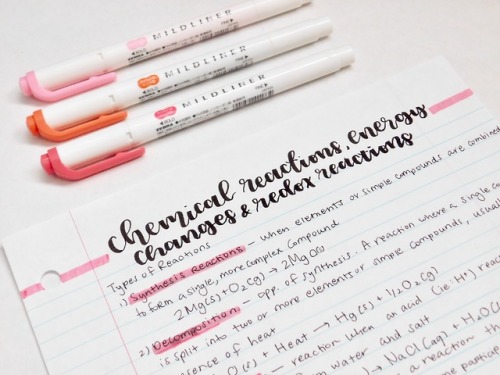 MILDLINER
MILDLINER
MILDLINER
chemical reactions, energy
changes & redox reactions
Types of Reactions
1) Synthesis Reactions – when elements or simple compounds are combined
to form a single, more complex compound
2Mg(s) + O₂(g) → 2MgO(s)
2) Decomposition – opp. of synthesis. A reaction where a single
is split into two or more elements or simple compounds, usually
presence of heat
O(s) + Heat → Hg(s) + 1/2 O₂(g)
– reaction when an acid (ie. H⁺) reacts
water and salt
→ NaCl(aq) + H₂O(
a reaction